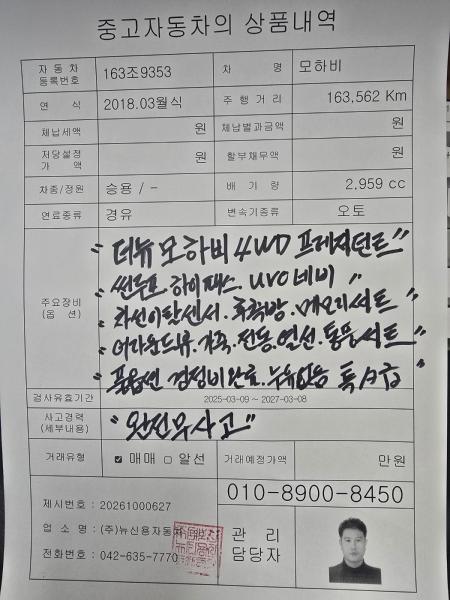 중고자동차의 상품내역
자동차 등록번호 163조9353 차 명 모하비
연 식 2018.03월식 주 행 거 리 163,562 Km
체납세액 원 체납별과금액 원
저당설정 가 액 원 할부채무액 원
차종/정원 승용 / - 배 기 량 2,959 cc
연료종류 경유 변속기종류 오토
주요장비 (옵 션)
"더뉴 모하비 4WD 프레지던트"
"썬루프.하이패스.UVO네비"
"차선이탈센서.후측방.메모리시트"
"어라운드뷰.가죽.전동.열선.통풍시트"
"풀옵션 점정비완료.누유없음 특A급"
검사유효기간 2025-03-09 ~ 2027-03-08
사고경력 (세부내용) "완전무사고"
거래형태 ☑ 매매 □ 알선 거래예정가액 만원
제시번호 : 20261000627
업 소 명 : (주)뉴신용자동차
전화번호 : 042-635-7770
010-8900-8450
관 리
담당자